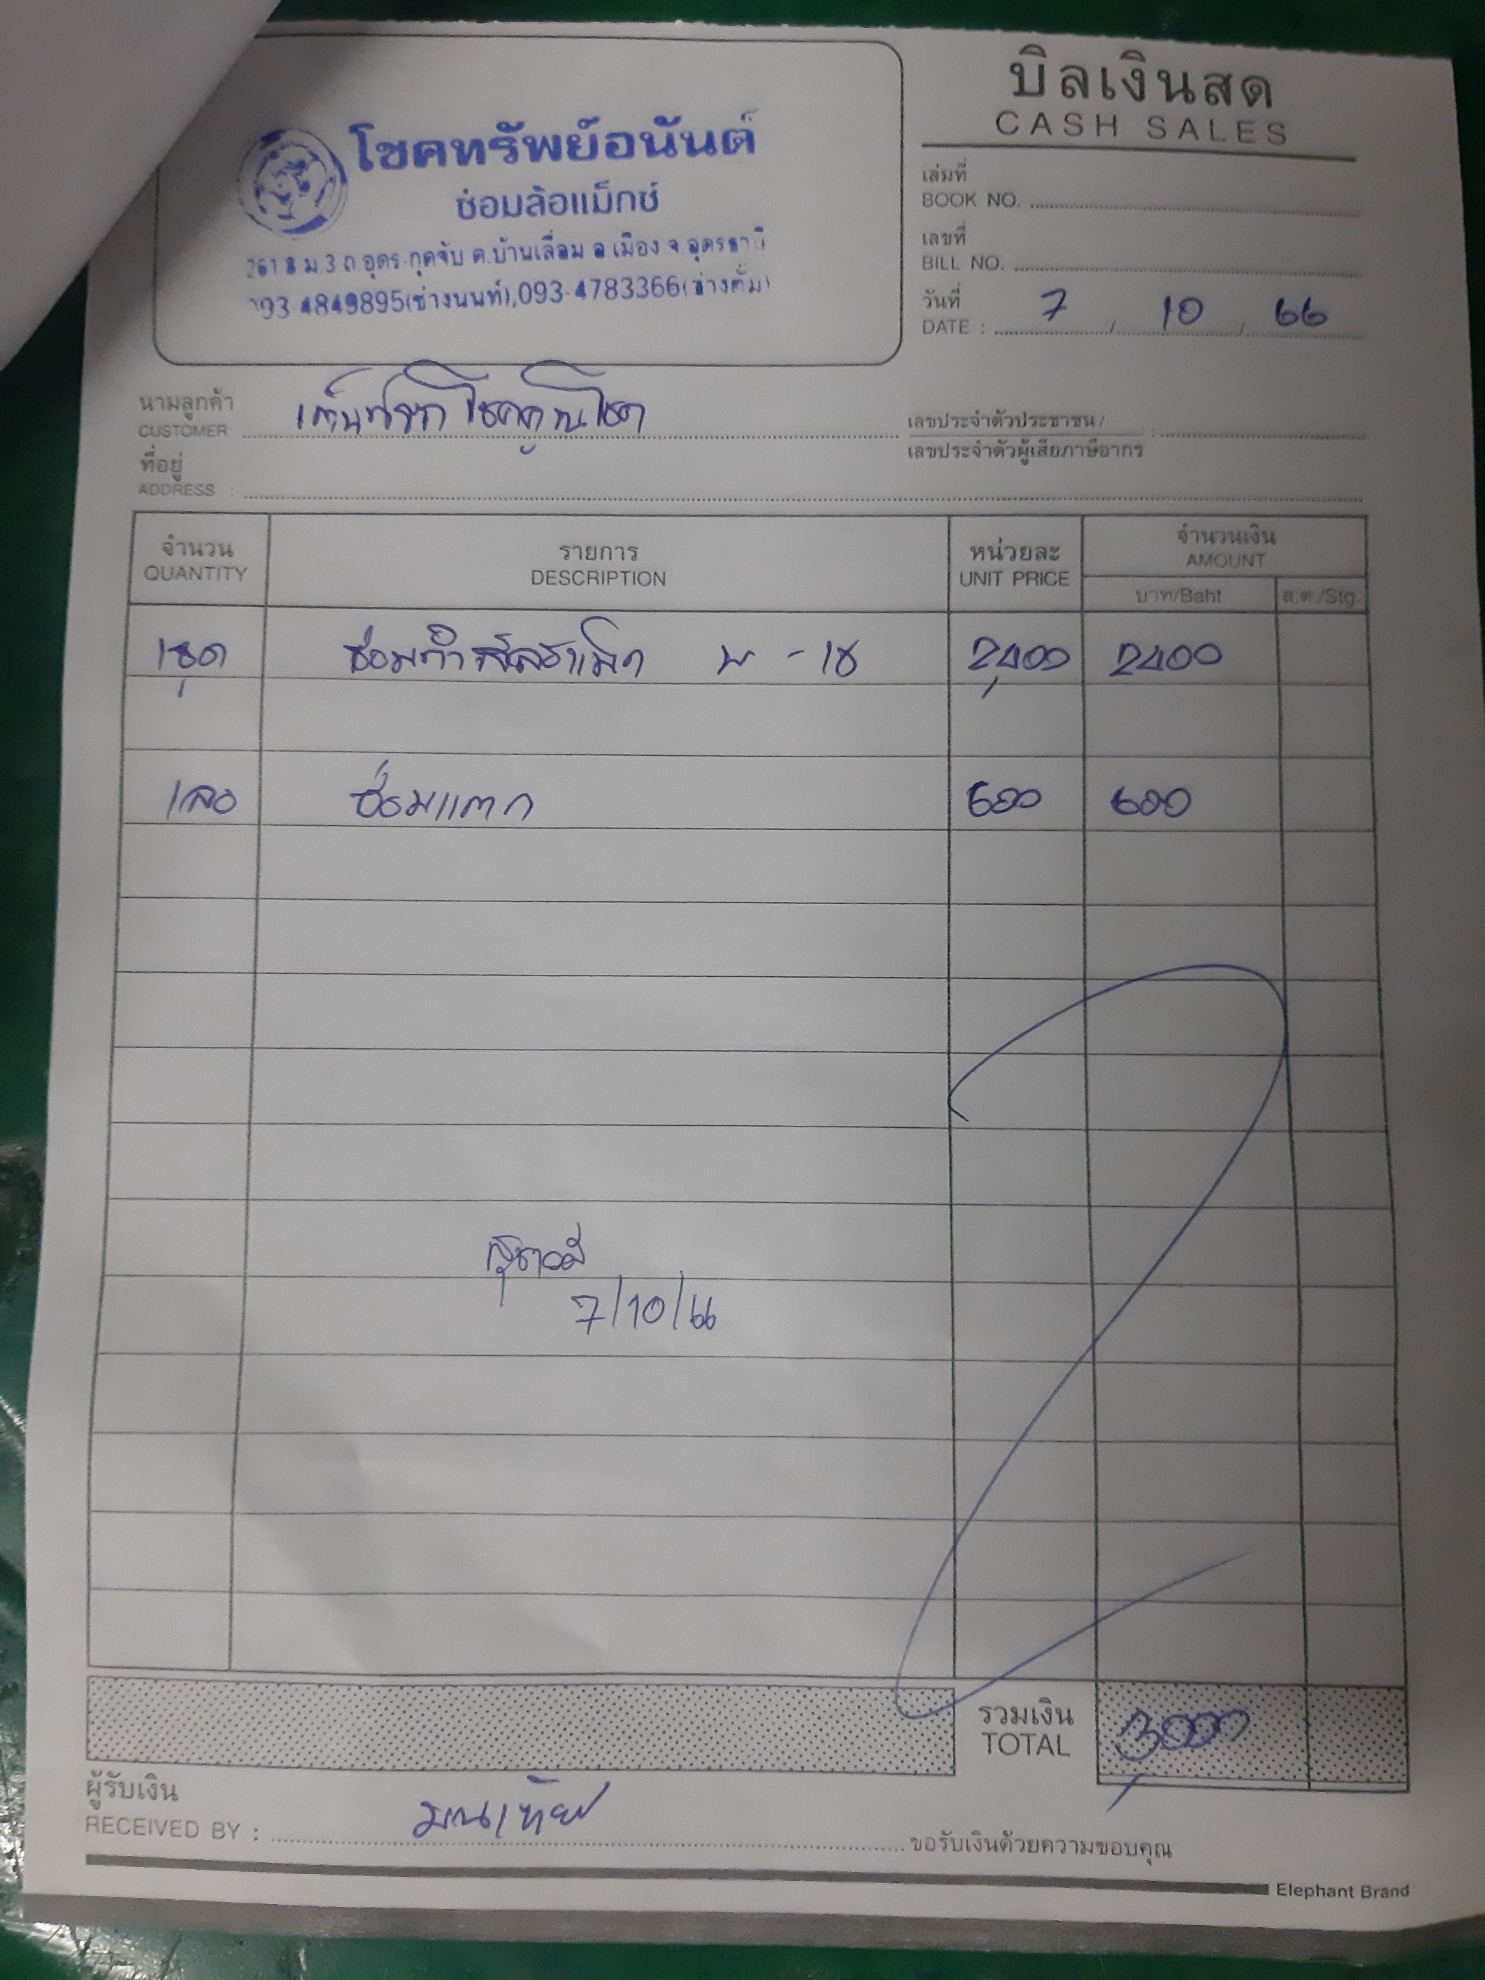 โชคทรัพย์อนันต์
ซ่อมล้อแม็กซ์
261 ม.3 ถ.อุดร-กุดจับ ต.บ้านเลื่อม อ.เมือง จ.อุดรธานี
093-4849895(ช่างนนท์),093-4783366(ช่างตั้ม)
บิลเงินสด
CASH SALES
เล่มที่
BOOK NO.
เลขที่
BILL NO.
วันที่
DATE : 7 / 10 / 66
นามลูกค้า
CUSTOMER เต็นท์รถ โชคคูณโชค
เลขประจำตัวประชาชน /
เลขประจำตัวผู้เสียภาษีอากร :
ที่อยู่
ADDRESS :
จำนวน รายการ หน่วยละ จำนวนเงิน
QUANTITY DESCRIPTION UNIT PRICE AMOUNT
บาท/Baht ส.ต./Stg.
1ชุด ซ่อมทำสีล้อแม็ก - 18 2,400 2400
1ลอ ซ่อมแตก 600 600
สุชาวดี
7/10/66
รวมเงิน
TOTAL 3,000
ผู้รับเงิน
RECEIVED BY : ขอรับเงินด้วยความขอบคุณ
Elephant Brand